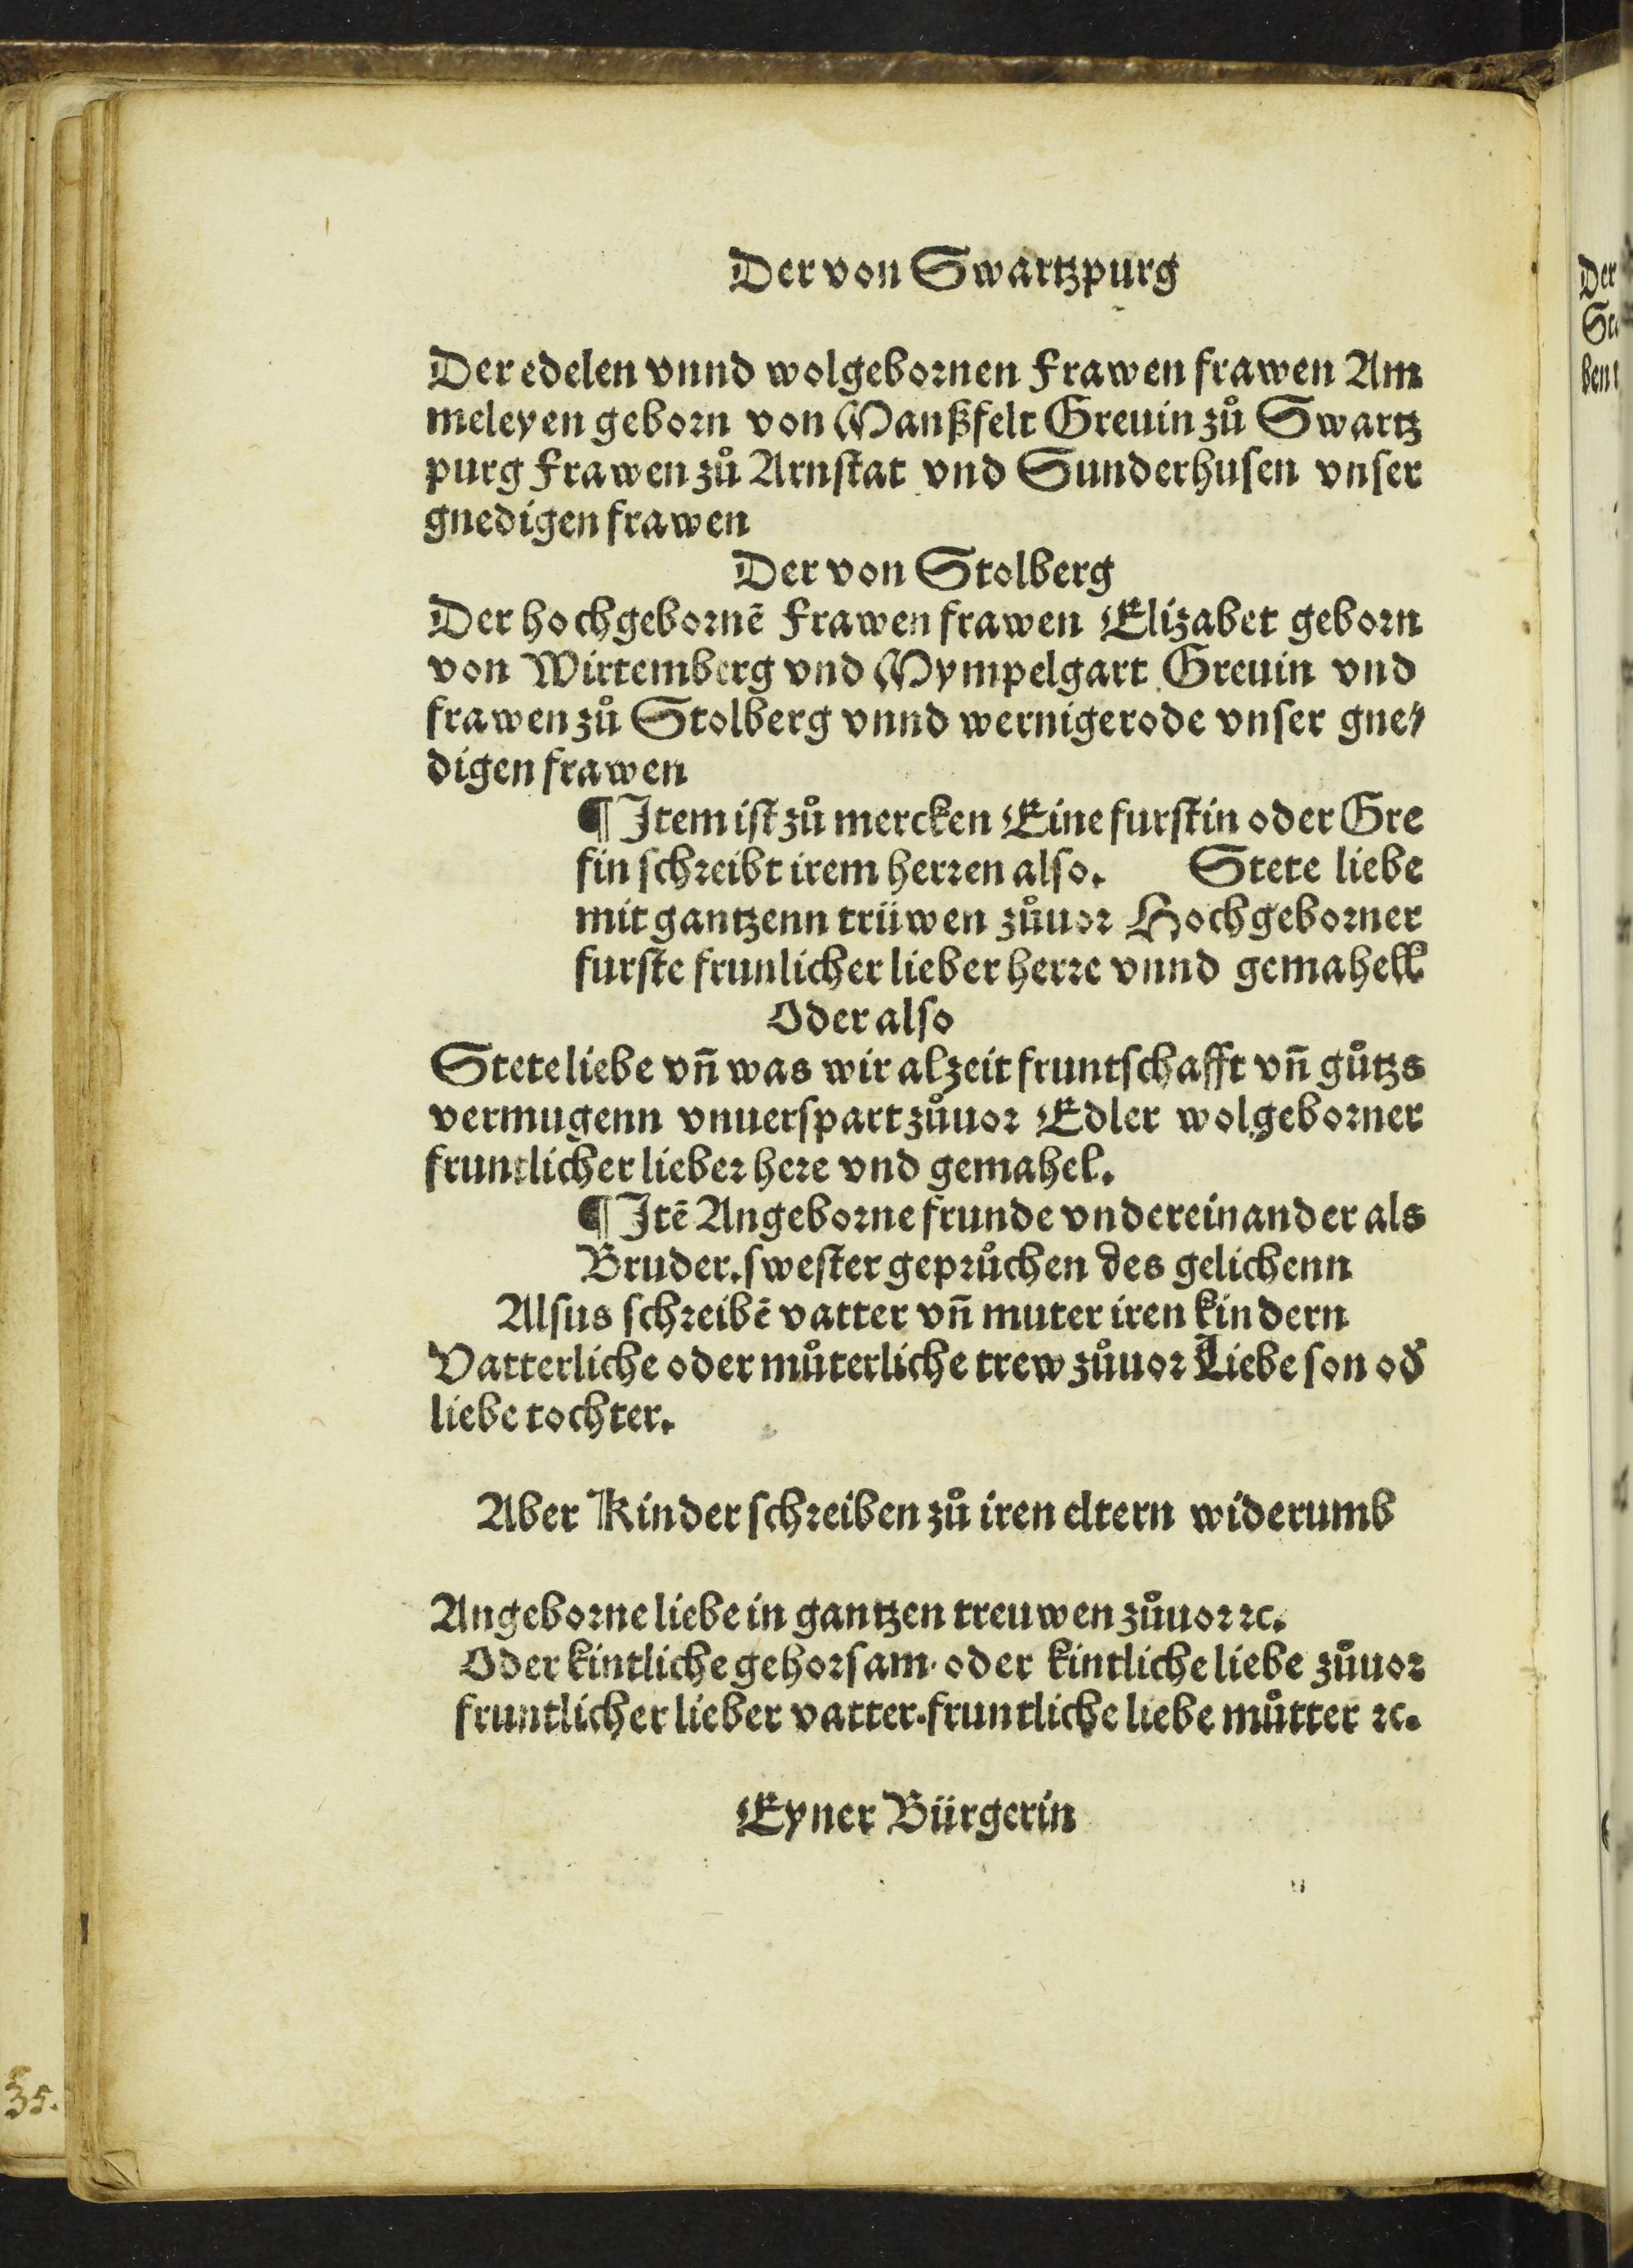 Der von Swartzpurg
Der edelen vnnd wolgebornen Frawen frawen Am
meleyen geborn von Manßfelt Greuin zů Swartz
purg Frawen zů Arnſtat vnd Sunderhuſen vnſer
gnedigen frawen
Der von Stolberg
Der hochgebornē Frawen frawen Elizabet geborn
von Wirtemberg vnd Mympelgart Greuin vnd
frawen zů Stolberg vnnd wernigerode vnſer gne⸗
digen frawen
¶ Item iſt zů mercken Eine furſtin oder Gre
fin ſchreibt irem herren alſo. Stete liebe
mit gantzenn trüwen zůuor Hochgeborner
furſte frunlicher lieber herre vnnd gemahell
Oder alſo
Stete liebe vñ was wir alzeit fruntſchafft vñ gůtzs
vermugenn vnuerſpart zůuor Edler wolgeborner
fruntlicher lieber here vnd gemahel.
¶ Itē Angeborne frunde vndereinander als
Bruder. ſweſter geprůchen des gelichenn
Alſus ſchreibē vatter vñ muter iren kindern
Vatterliche oder můterliche trew zůuor Liebe ſon od̕
liebe tochter.
Aber Kinder ſchreiben zů iren eltern widerumb
Angeborne liebe in gantzen treuwen zůuor ꝛc.
Oder kintliche gehorſam· oder kintliche liebe zůuor
fruntlicher lieber vatter. fruntliche liebe můtter ꝛc.
Eyner Bürgerin
35.
Der
ben